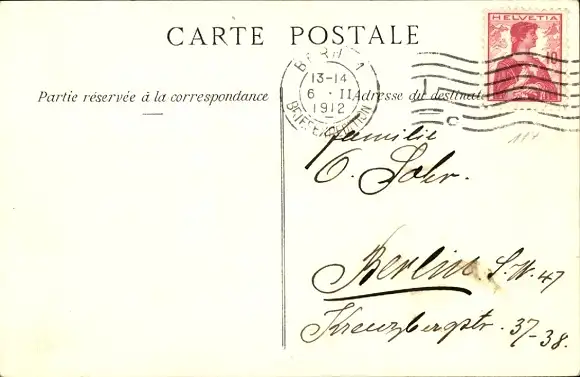 CARTE POSTALE
HELVETIA
10
BERN 1
13-14
6 · II
1912
BRIEFEXPEDITION
Partie réservée à la correspondance
Adresse du destinat
Familie
O. Lohr.
Berlin S.W. 47
Kreuzbergstr. 37-38.